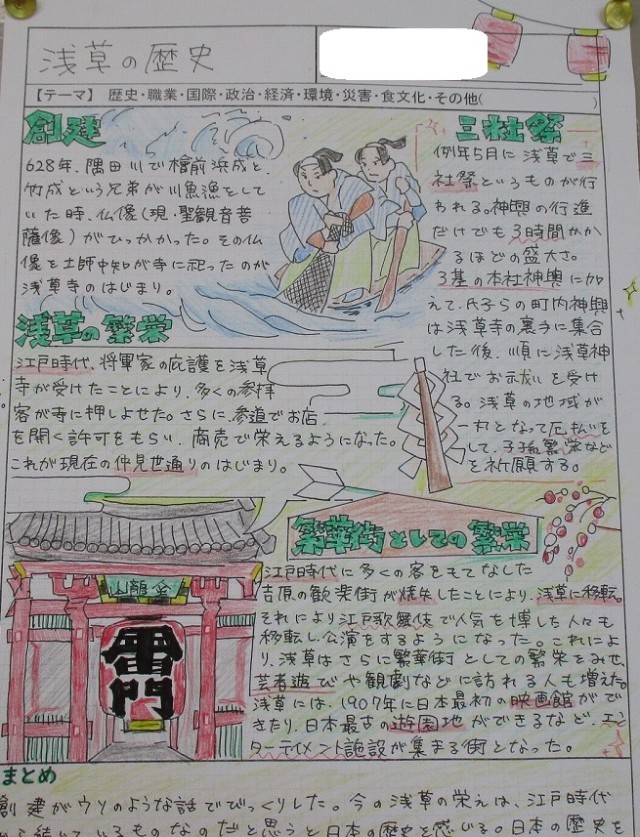 浅草の歴史
【テーマ】 歴史・職業・国際・政治・経済・環境・災害・食文化・その他( )
創建
628年、隅田川で檜前浜成と、
竹成という兄弟が川魚漁をして
いた時、仏像(現・聖観音菩
薩像)がひっかかった。その仏
像を土師中知が寺に祀ったのが
浅草寺のはじまり。
三社祭
例年5月に浅草で三
社祭というものが行
われる。神輿の行進
だけでも3時間かか
るほどの盛大さ。
3基の本社神輿に加
えて、氏子らの町内神輿
は浅草寺の裏手に集合
した後、順に浅草神
社でお祓いを受け
る。浅草の地域が
一丸となって厄払いを
して、子孫繁栄など
を祈願する。
浅草の繁栄
江戸時代、将軍家の庇護を浅草
寺が受けたことにより、多くの参拝
客が寺に押しよせた。さらに、参道でお店
を開く許可をもらい、商売で栄えるようになった。
これが現在の仲見世通りのはじまり。
繁華街としての繁栄
江戸時代に多くの客をもてなした
吉原の歓楽街が焼失したことにより、浅草に移転。
それにより江戸歌舞伎で人気を博した人々も
移転し公演をするようになった。これによ
り、浅草はさらに繁華街としての繁栄をみせ、
芸者遊びや観劇などに訪れる人も増えた。
浅草には、1907年に日本最初の映画館がで
きたり、日本最古の遊園地ができるなど、エン
ターテイメント施設が集まる街となった。
山龍金
雷門
まとめ
創建がウソのような話でびっくりした。今の浅草の栄えは、江戸時代
から続いているものなのだと思うと日本の歴史を感じる。日本の歴史を